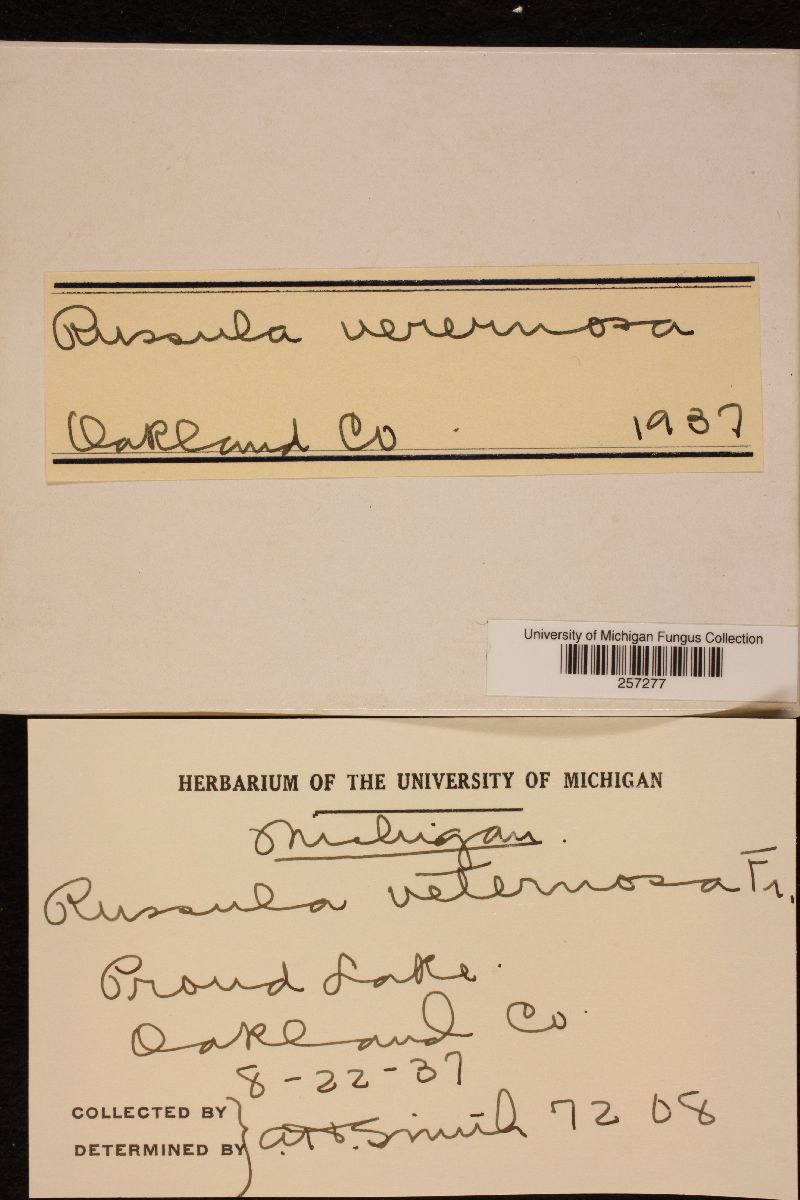 Russula veternosa
Oakland Co. 1937
University of Michigan Fungus Collection
257277
HERBARIUM OF THE UNIVERSITY OF MICHIGAN
Michigan.
Russula veternosa Fr.
Proud Lake.
Oakland Co.
8-22-37
COLLECTED BY
DETERMINED BY } A.H. Smith 7208